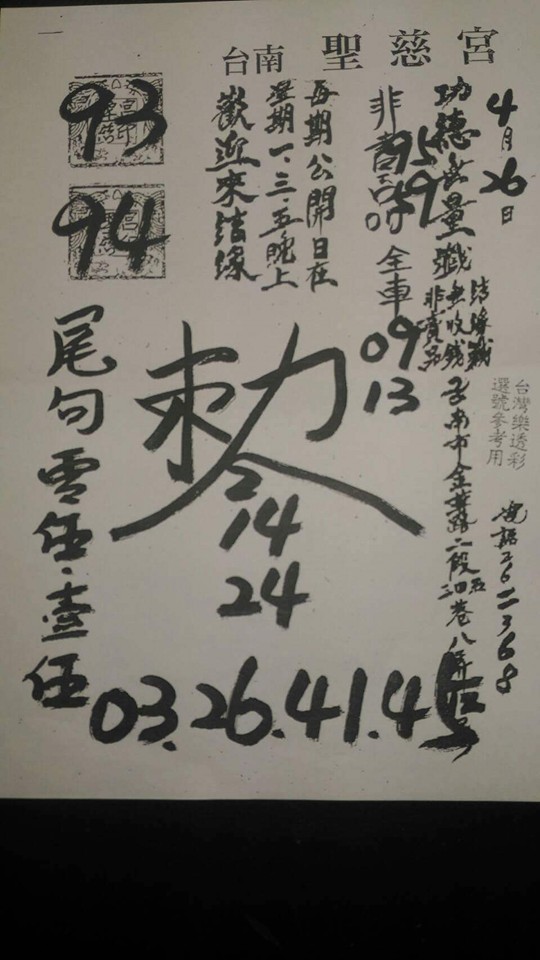 台南 聖慈宮
4月26日
功德無量
結緣
無收錢
非賣品
非賣品 全車
95
59
09
13
每期公開日在
星期一.三.五晚上
歡迎來結緣
93
94
台灣樂透彩
選號參考用
電話2622368
台南市金華路二段
巷八弄
敕令
2
14
24
尾句零伍.壹伍
03.26.41.45